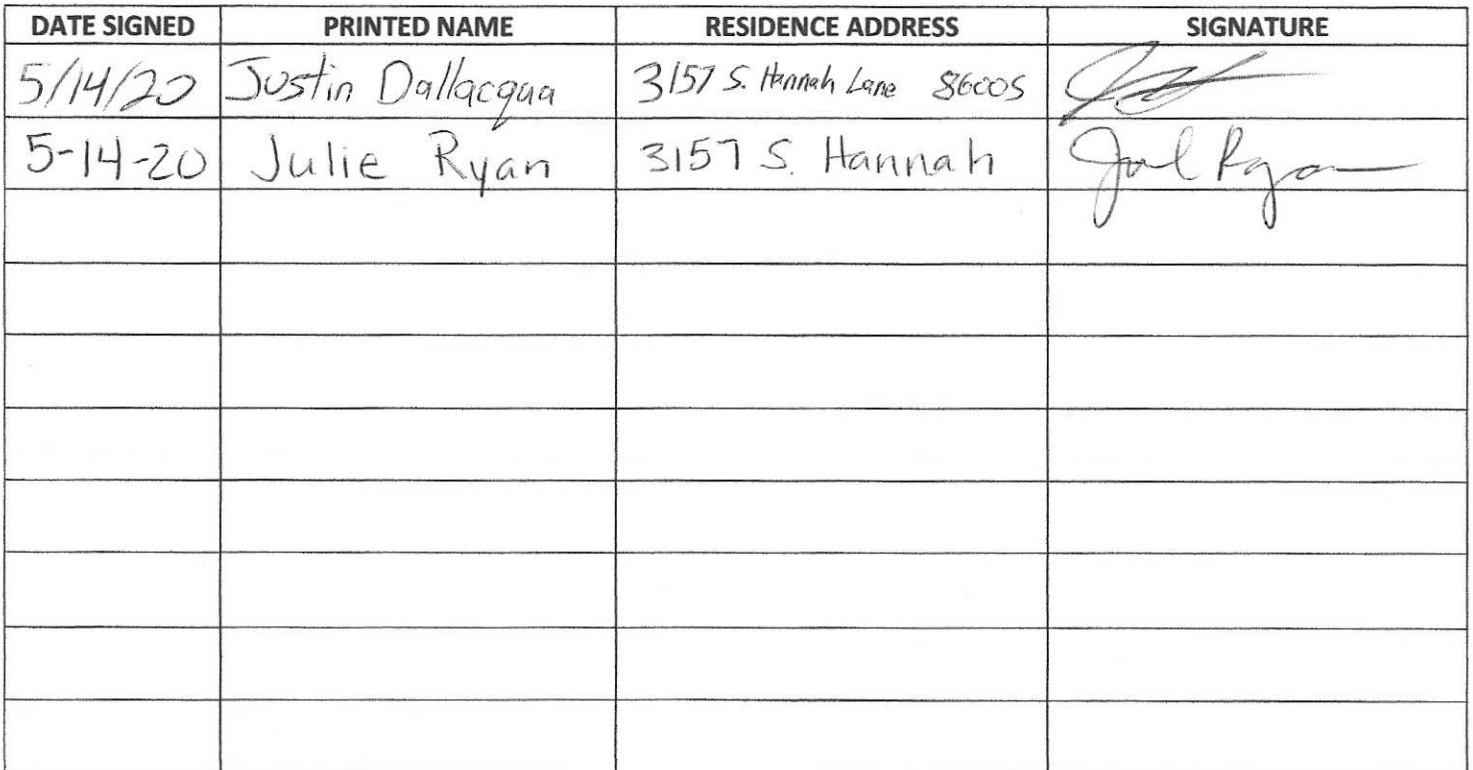 DATE SIGNED PRINTED NAME RESIDENCE ADDRESS SIGNATURE
5/14/20 Justin Dallacqua 3157 S. Hannah Lane 86005
5-14-20 Julie Ryan 3157 S. Hannah Jul Ryan